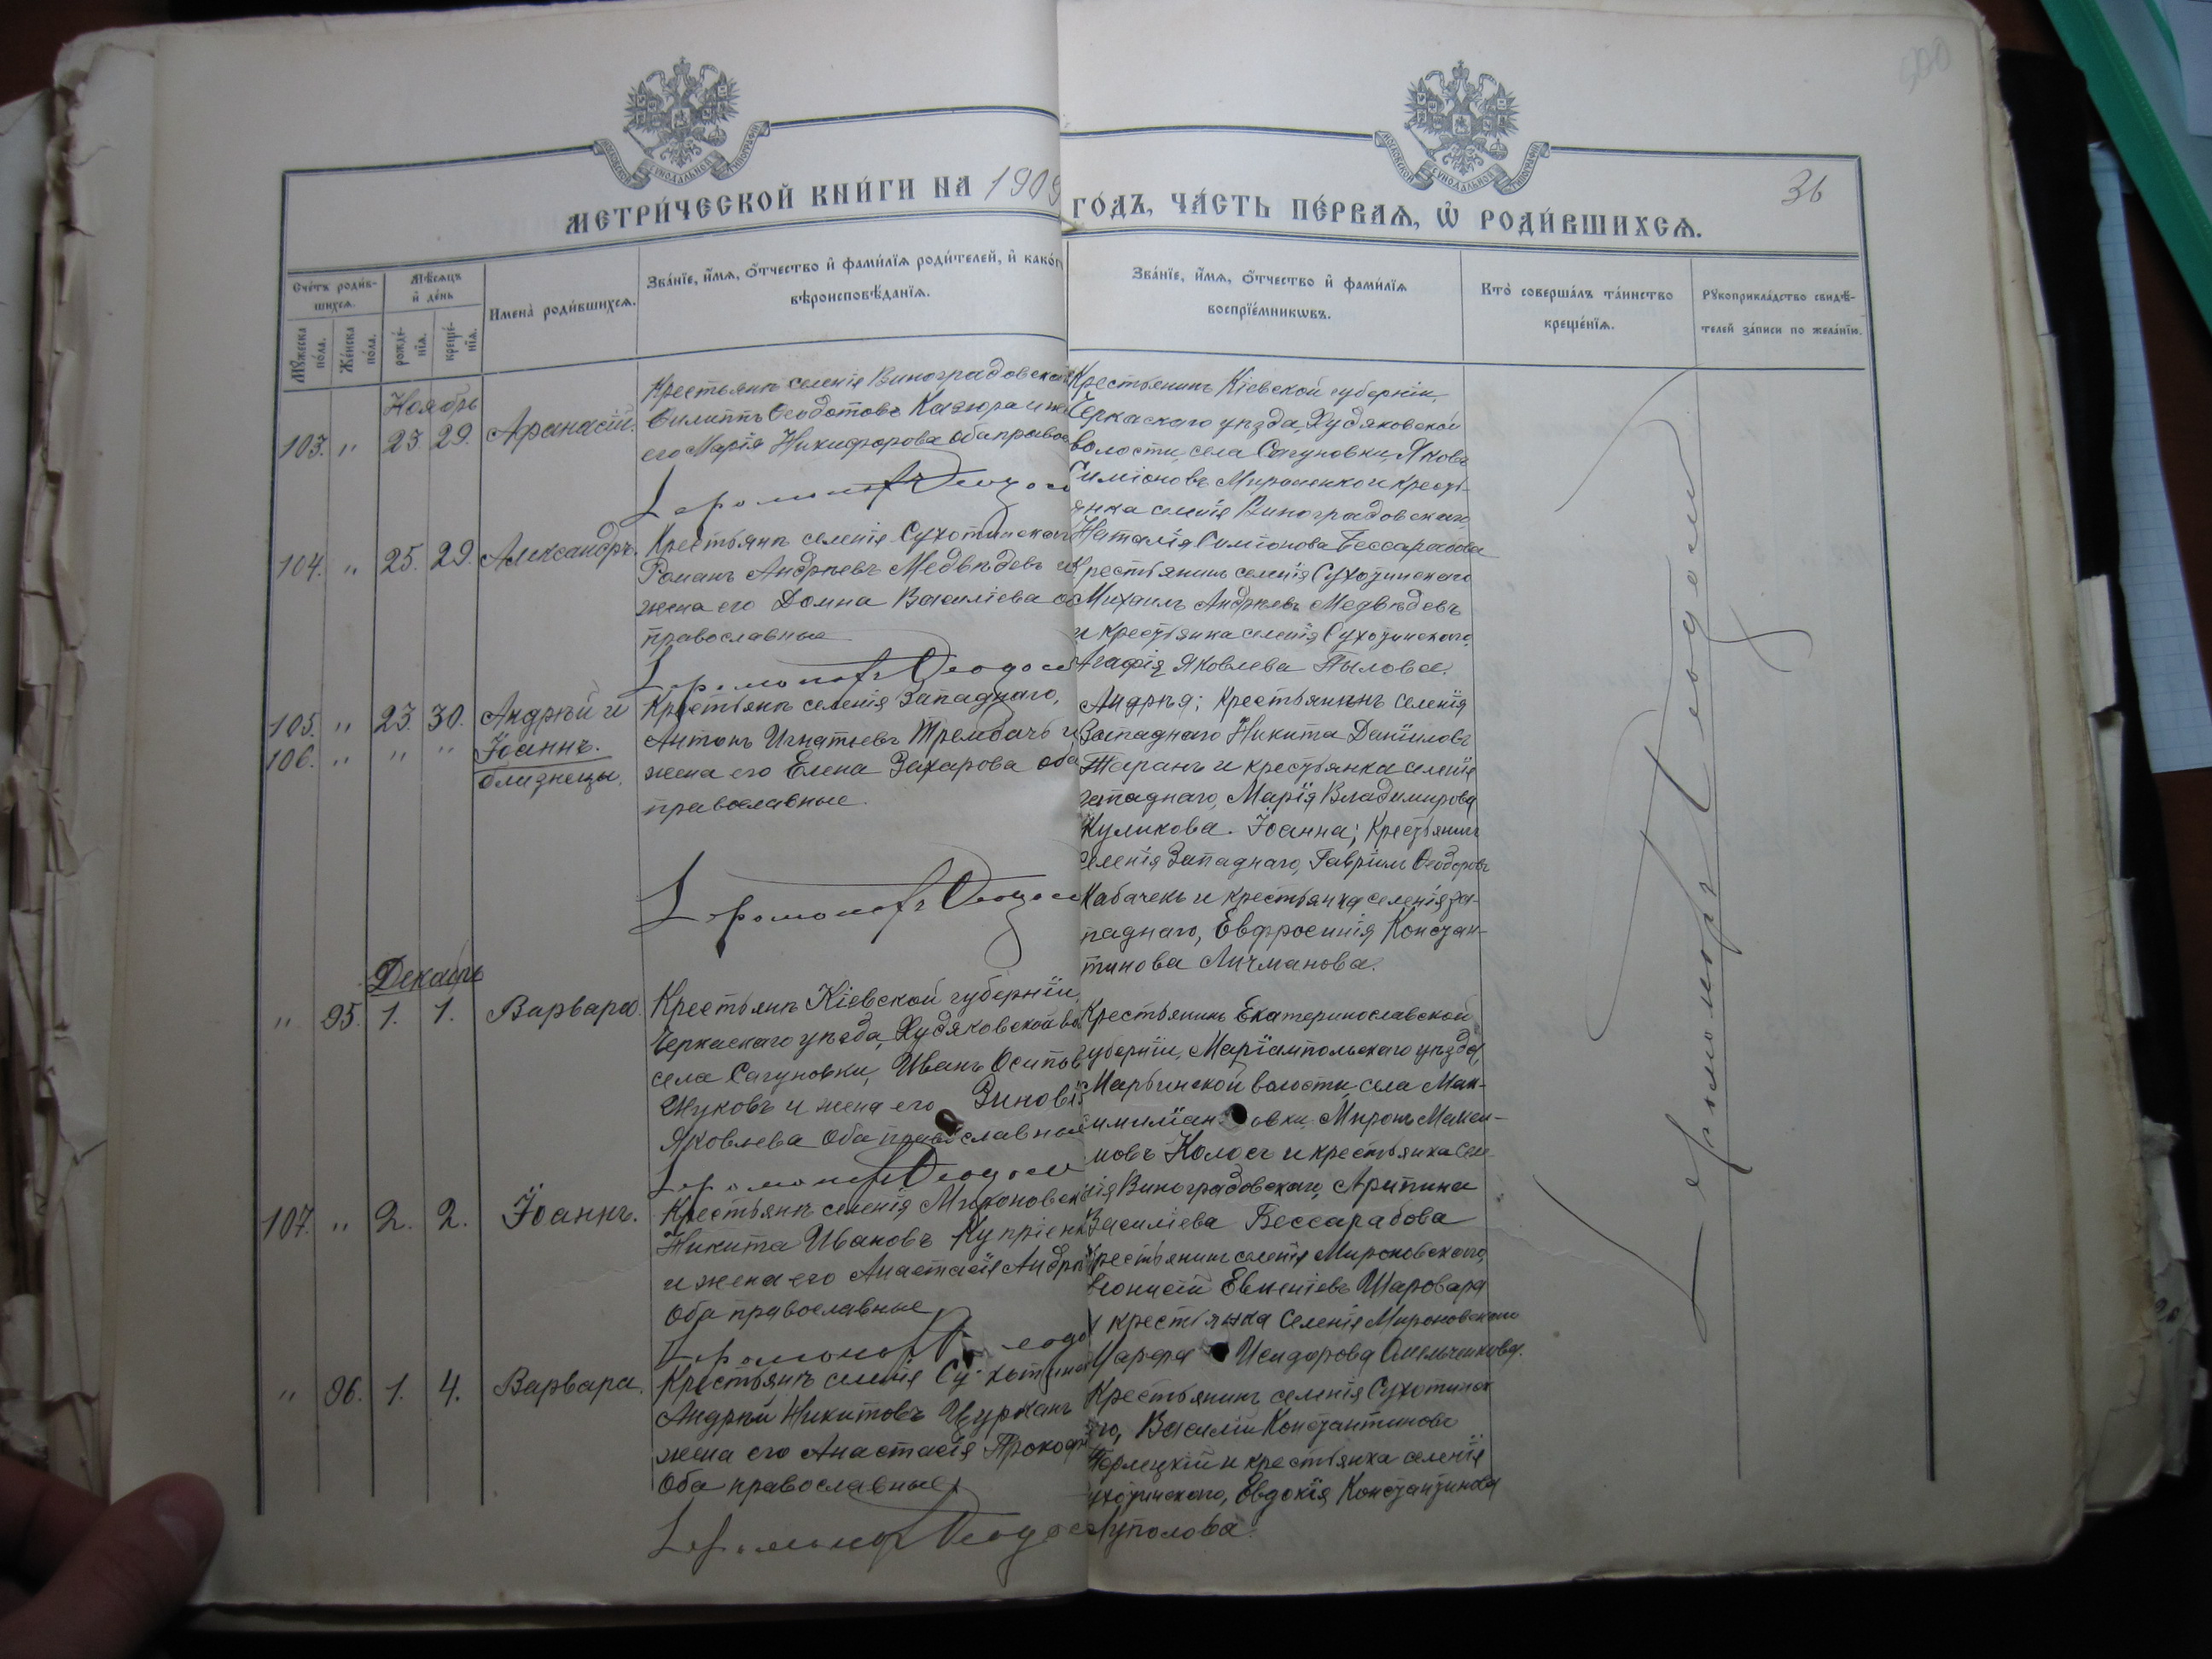 МОСКОВСКОЙ СѴНОДАЛЬНОЙ ТИПОГРАФІИ
МОСКОВСКОЙ СѴНОДАЛЬНОЙ ТИПОГРАФІИ
36
МЕТРИ́ЧЕСКОЙ КНИ́ГИ НА 1909
ГО́ДЪ, ЧА́СТЬ ПЕ́РВАѦ, Ѽ РОДИ́ВШИХСѦ.
Сче́тъ роди́в-
шихсѧ.
Мꙋ́жеска по́ла.
Же́нска по́ла.
Мѣ́сѧцъ
и҆ де́нь
рожде́-
нїѧ.
креще́-
нїѧ.
И҆мена̀ роди́вшихсѧ.
Зва́нїе, и҆́мѧ, ѻ҆́тчество и҆ фами́лїѧ роди́телей, и҆ како́гѡ
вѣроисповѣ́данїѧ.
Зва́нїе, и҆́мѧ, ѻ҆́тчество и҆ фами́лїѧ
воспрїе́мникѡвъ.
Кто̀ соверша́лъ та́инство
креще́нїѧ.
Рꙋкоприкла́дство свидѣ́-
телей за́писи по жела́нїю.
Ноябрь
103. " 23. 29. Афанасій.
Крестьянъ селенія Виноградовска
Филиппъ Ѳеодотовъ Казюра и же
его Марія Никифорова оба правос
Іеромонахъ Ѳеодосі
Крестьянинъ Кіевской губерніи,
Черкаскаго уѣзда, Худяковской
волости, села Сагуновки, Яковъ
Симіоновъ Мироненко и кресть-
янка селенія Виноградовскаго,
Наталія Симіонова Бессарабова
104. " 25. 29. Александръ.
Крестьянъ селенія Сухотинскаго
Романъ Андреевъ Медвѣдевъ и
жена его Домна Василіева об
православные
Іеромонахъ Ѳеодосі
Крестьянинъ селенія Сухотинскаго
Михаилъ Андреевъ Медвѣдевъ
и крестьянка селенія Сухотинскаго,
Агафія Яковлева Пылова.
105. " 23. 30. Андрѣй и
106. " " " Іоаннъ.
близнецы.
Крестьянъ селенія Западнаго,
Антонъ Игнатьевъ Трембачъ и
жена его Елена Захарова оба
православные.
Іеромонахъ Ѳеодосі
Андрѣя; Крестьянинъ селенія
Западнаго Никита Даніиловъ
Таранъ и крестьянка селенія
Западнаго, Марія Владимирова
Куликова. Іоанна; Крестьянинъ
селенія Западнаго, Гавріилъ Ѳеодоровъ
Кабачекъ и крестьянка селенія За-
паднаго, Евфросинія Констан-
тинова Личманова.
Декабрь
" 95. 1. 1. Варвара.
Крестьянъ Кіевской губерніи,
Черкаскаго уѣзда, Худяковской во
села Сагуновки, Иванъ Осиповъ
Жуковъ и жена его Зиновія
Яковлева Оба православные
Іеромонахъ Ѳеодосі
Крестьянинъ Екатеринославской
губерніи, Маріампольскаго уѣзда,
Марьинской волости, села Мак-
симиліановки Миронъ Макси-
мовъ Колосъ и крестьянка селе-
нія Виноградовскаго, Агрипина
Василіева Бессарабова
107. " 2. 2. Іоаннъ.
Крестьянъ селенія Мироновска
Никита Ивановъ Купріенк
и жена его Анастасія Андре
Оба православные
Іеромонахъ Ѳеодо
Крестьянинъ селенія Мироновскаго,
Леонисій Евменіевъ Шаровара
и крестьянка Селенія Мироновскаго
Марфа Исидорова Омельченкова.
" 96. 1. 4. Варвара.
Крестьянъ селенія Сухотинск
Андрей Никитовъ Цурканъ
жена его Анастасія Прокофі
Оба православные
Іеромонахъ Ѳеодос
Крестьянинъ селенія Сухотинска
го, Василій Константиновъ
Терлецкій и крестьянка селенія
Сухотинскаго, Евдокія Константинова
Луполова.
Іеромонахъ Ѳеодосі